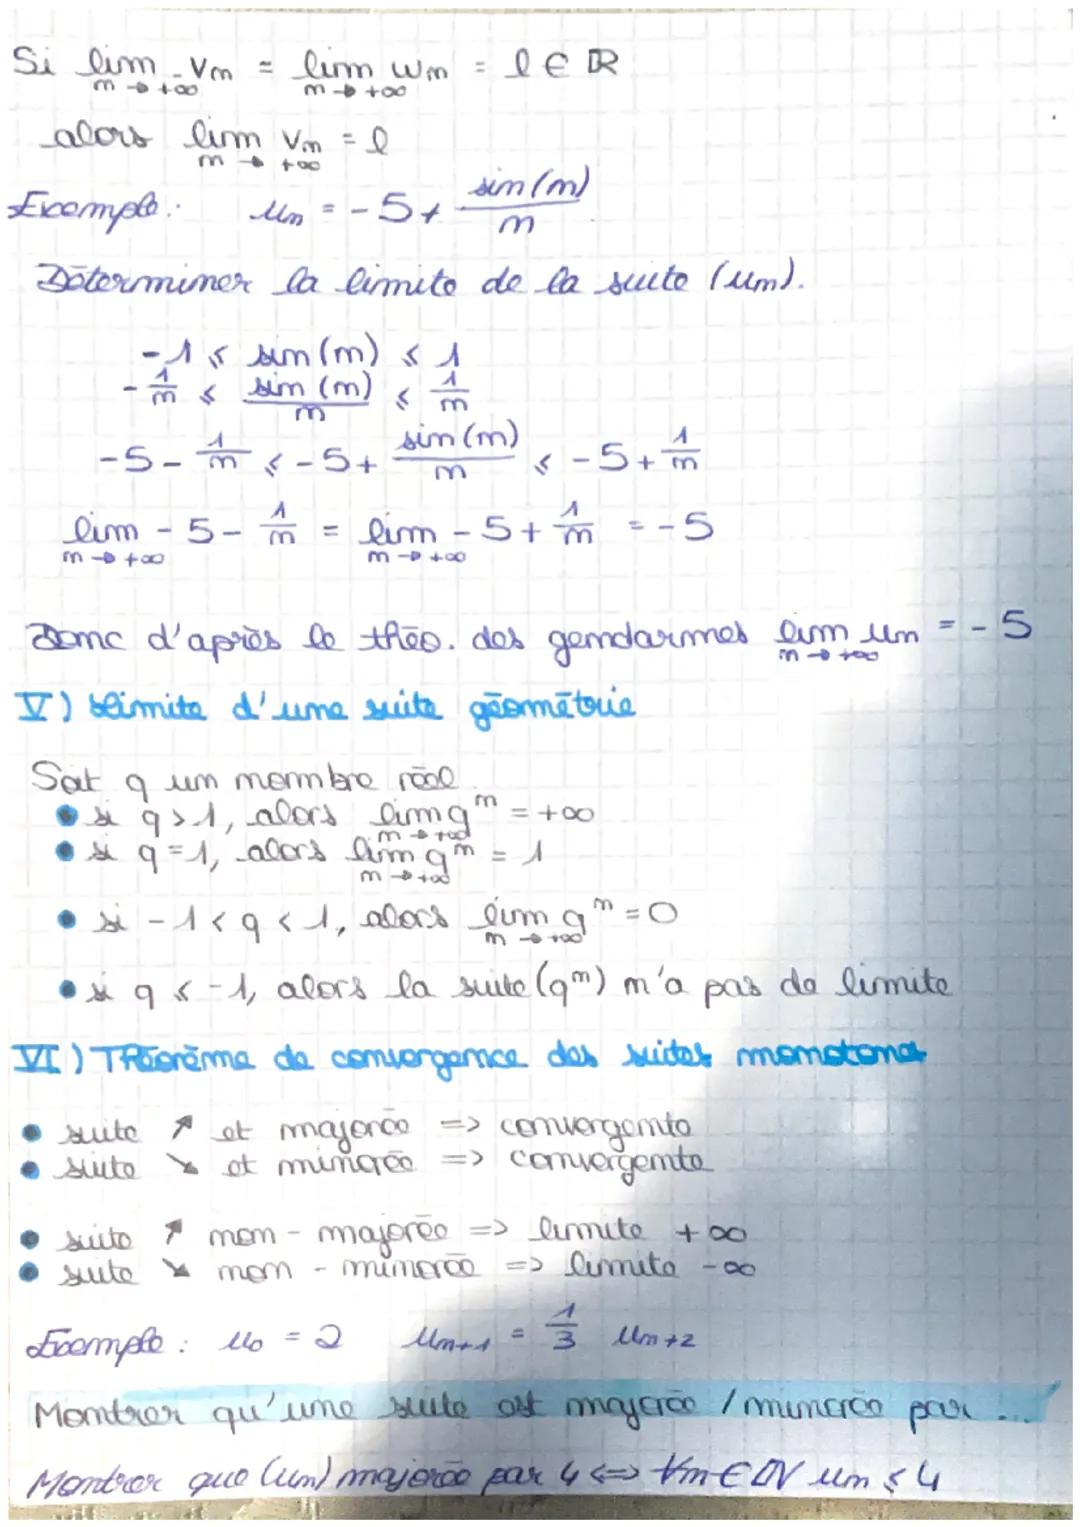 Si lim Vn = lim Wn = l ∈ ℝ
n → +∞ n → +∞
alors lim Vn = l
n → +∞
Exemple : Un = -5 + sin(n)/n
Déterminer la limite de la suite (un).
-1 ≤ sin(n) ≤ 1
-1/n ≤ sin(n)/n ≤ 1/n
-5 - 1/n ≤ -5 + sin(n)/n ≤ -5 + 1/n
lim -5 - 1/n = lim -5 + 1/n = -5
n → +∞ n → +∞
Donc d'après le théo. des gendarmes lim un = -5
n → +∞
V) Limite d'une suite géométrie
Soit q un nombre réel
• si q > 1, alors lim qⁿ = +∞
n → +∞
• si q = 1, alors lim qⁿ = 1
n → +∞
• si -1 < q < 1, alors lim qⁿ = 0
n → +∞
• si q ≤ -1, alors la suite (qⁿ) n'a pas de limite
VI) Théorème de convergence des suites monotones
• suite ↗ et majorée => convergente
• suite ↘ et minorée => convergente
• suite ↗ non-majorée => limite +∞
• suite ↘ non-minorée => limite -∞
Exemple : u0 = 2 Un+1 = 1/3 Un+2
Montrer qu'une suite est majorée / minorée par ...
Montrer que (un) majorée par 4 <=> ∀n ∈ ℕ un ≤ 4